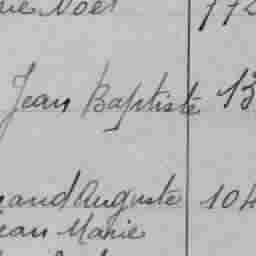 Noël 172
Jean Baptiste 13
Auguste 104
Jean Marie